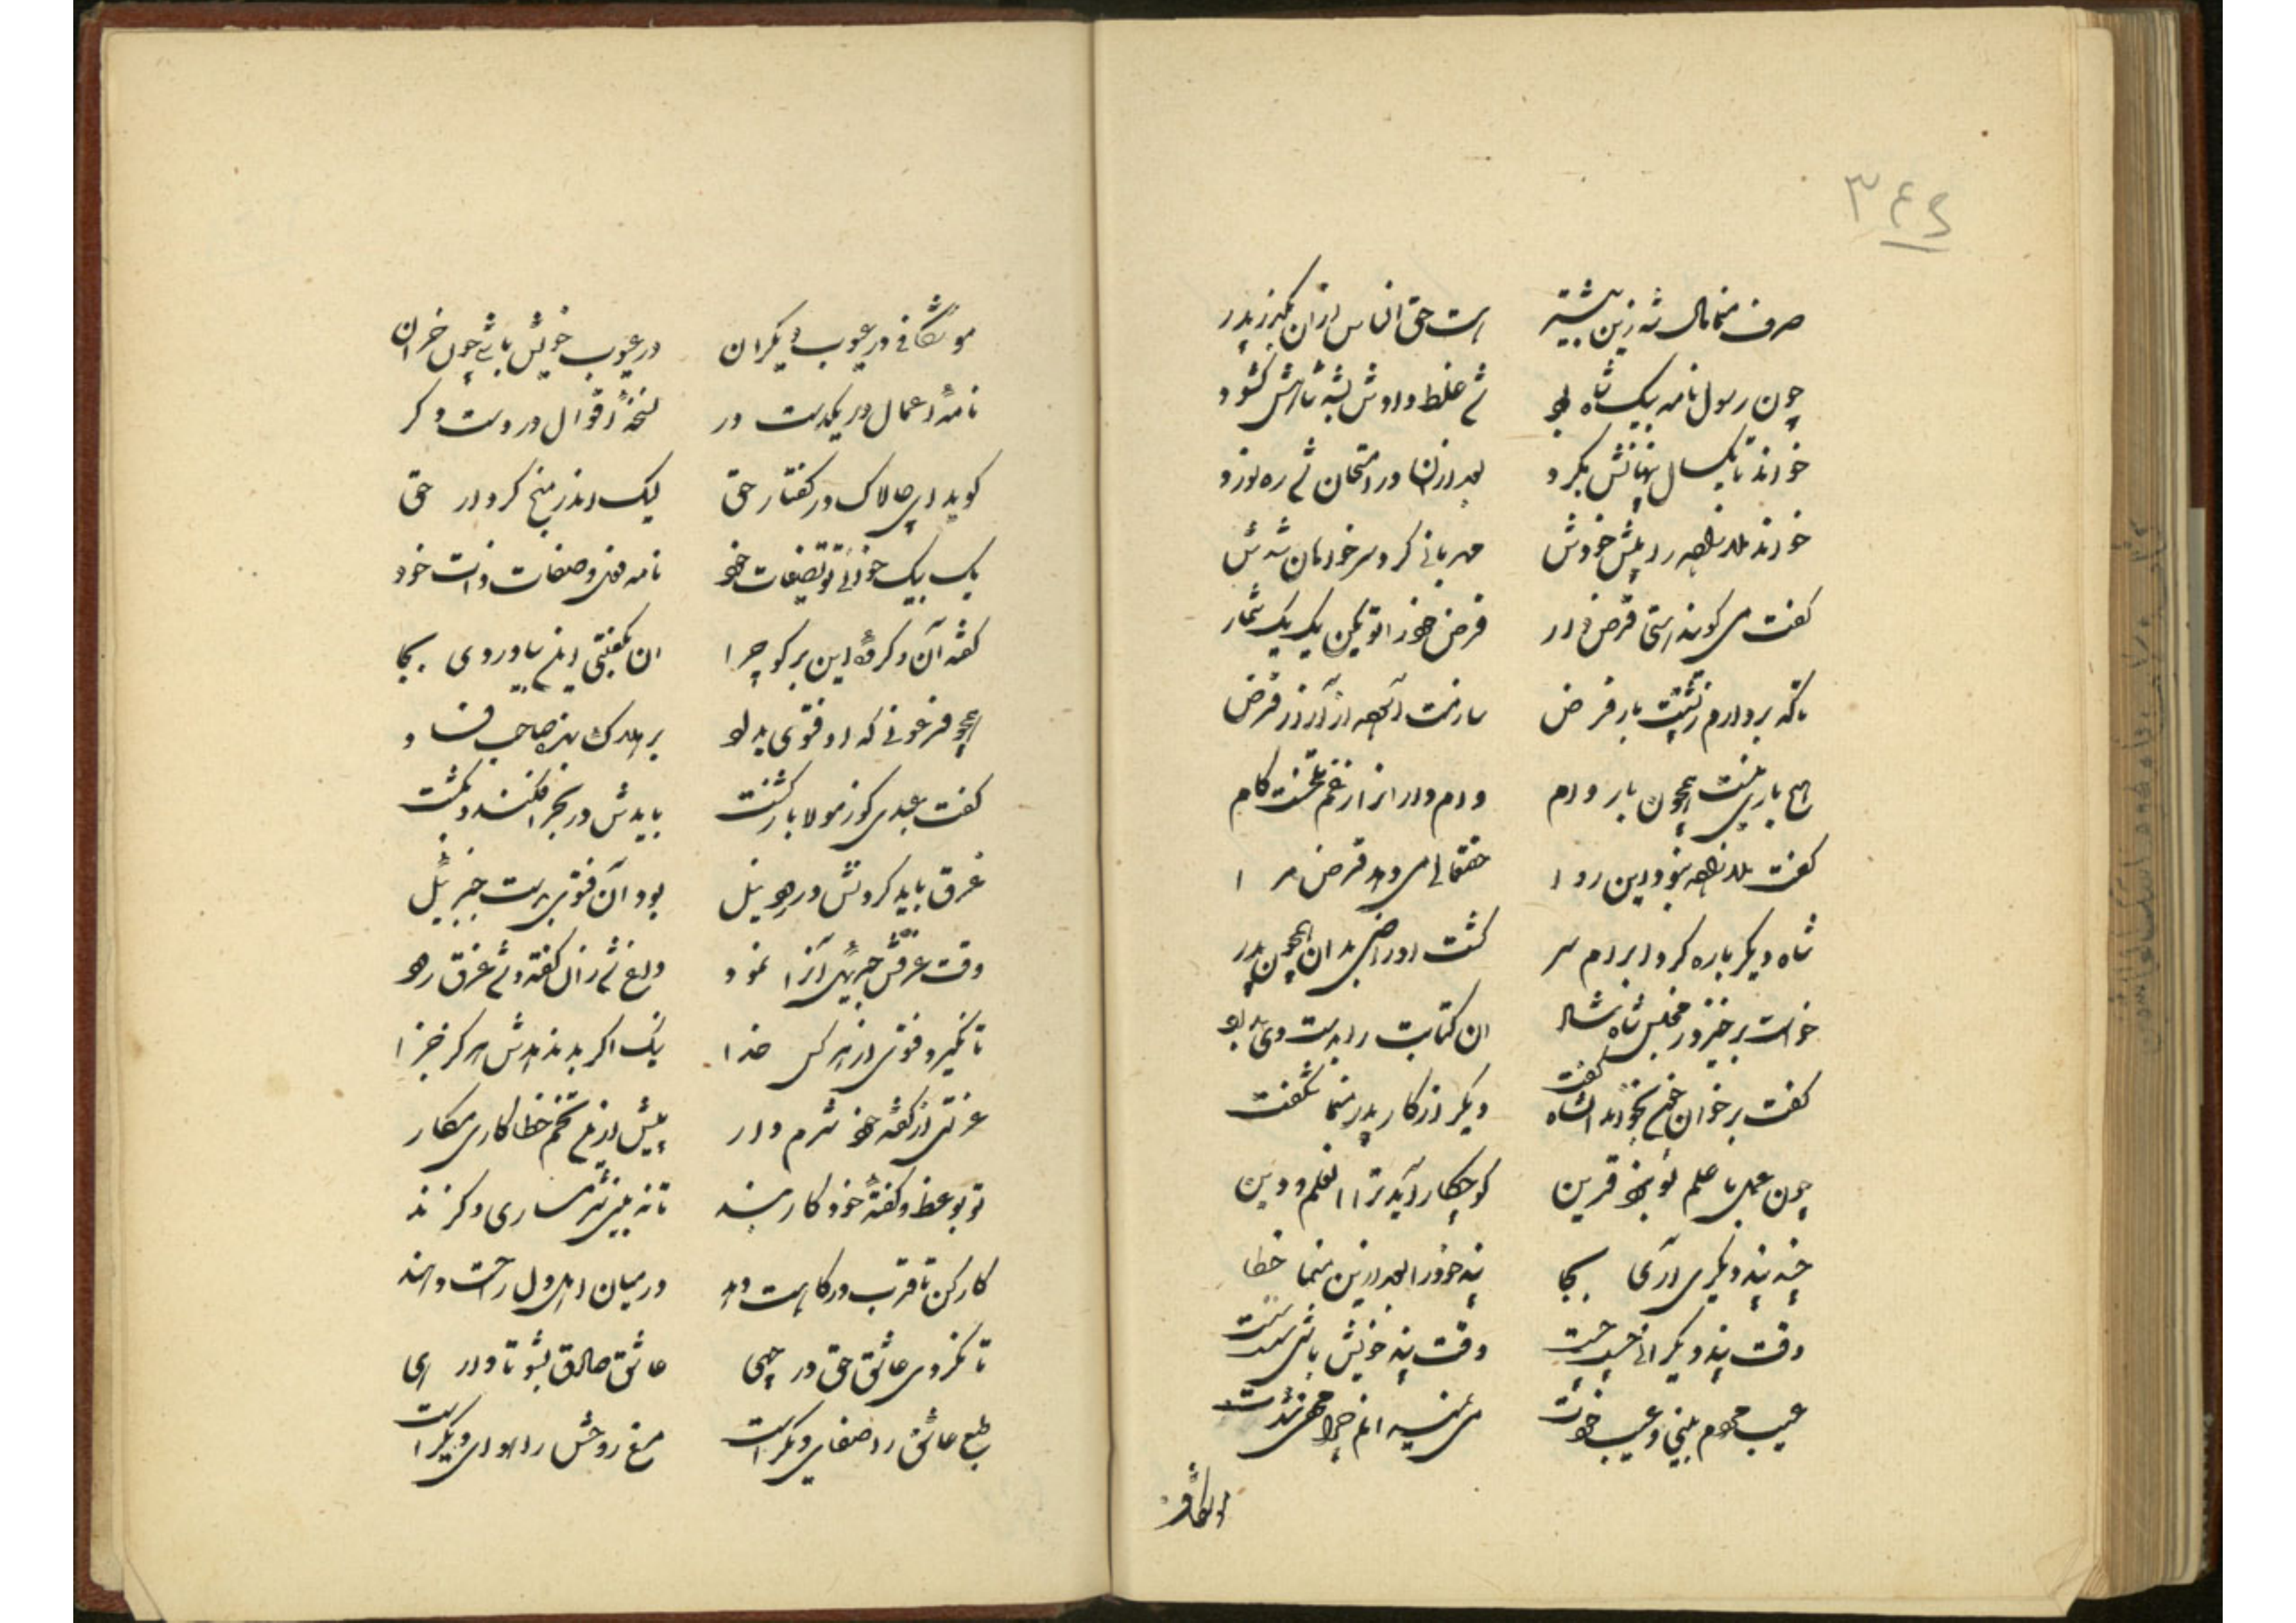 ۳۴۶
صرف منما مال شه زین بیشتر است حق الناس ازان مگریز پدر
چون رسول نامه بیک شاه بود شد غلط دادش بشه شاهش گشود
خواند تا یکسال پنهانش بکرد بعد ازان در امتحان شد ره نورد
خواند ملا نطعه را پیش خودش مهربانی کرد سر خوان شدش
گفت می گویند استی قرض دار قرض خود را تو بمن یک یک شمار
تا که بردارم ز پشتت بار قرض سازمت آنگه از آزاد قرض
هیچ باری نیست همچون بار وام وام دار انرا ز غم تلخست کام
گفت ملا نطعه نبود این روا حقتعالی می دهد قرض مرا
شاه دیگر باره کرد ابرام سر گشت او راضی بدان همچون پدر
خواست برخیزد ز مجلس شاه شاد ان کتابت را بدست وی بداد
گفت برخوان خود بخواند شاه گفت دیگر از کار پدر منما شگفت
چون عمل با علم تو نبود قرین کو چکار آید ترا العلم و دین
چند پند دیگری آری بجا پند خود را بعد ازین منما خطا
وقت پند دیگرانی چست چست وقت پند خویش باشی سست سست
عیب مردم بینی و عیب خودت
موشگافی در عیوب دیگران در عیوب خویش باشی چون خران
نامهٔ اعمال در یکدست در نسخهٔ اقوال در دست دگر
گوید ای چالاک در گفتار حق لیک اندر منهج کردار حق
یک بیک خوانی تو تصنیفات خود نامه فعل و صفات ذات خود
گفته آن و کردهٔ این برگو چرا ان بگفتی اینهم بیاوردی بجا
همچو فرعونی که او فتوی بداد بر هلاک بنده صاحب فساد
گفت عبدی کو ز مولا باز گشت بایدش در بحر افکند و بکشت
غرق باید کردنش در رود نیل بود آن فتوی بدست جبرئیل
وقت غرقش جبرئیل آنرا نمود داغ شد زان گفته و شد غرق رود
تا نگیرد فتوی از هر کس خدا نیک اگر بد ندهدش هرگز جزا
عزتی از گفته خود شرم دار بیش ازین تخم خطا کاری مکار
تو بوعظ و گفتهٔ خود کار بند تا نه بینی شرمساری و گزند
کار کن تا قرب درگاهت دهد در میان اهل دل راحت دهند
تا نگردی عاشق حق در چهی عاشق صادق بشو تا وارهی
طبع عاشق را صفای دیگر است مرغ روحش را هوای دیگر است